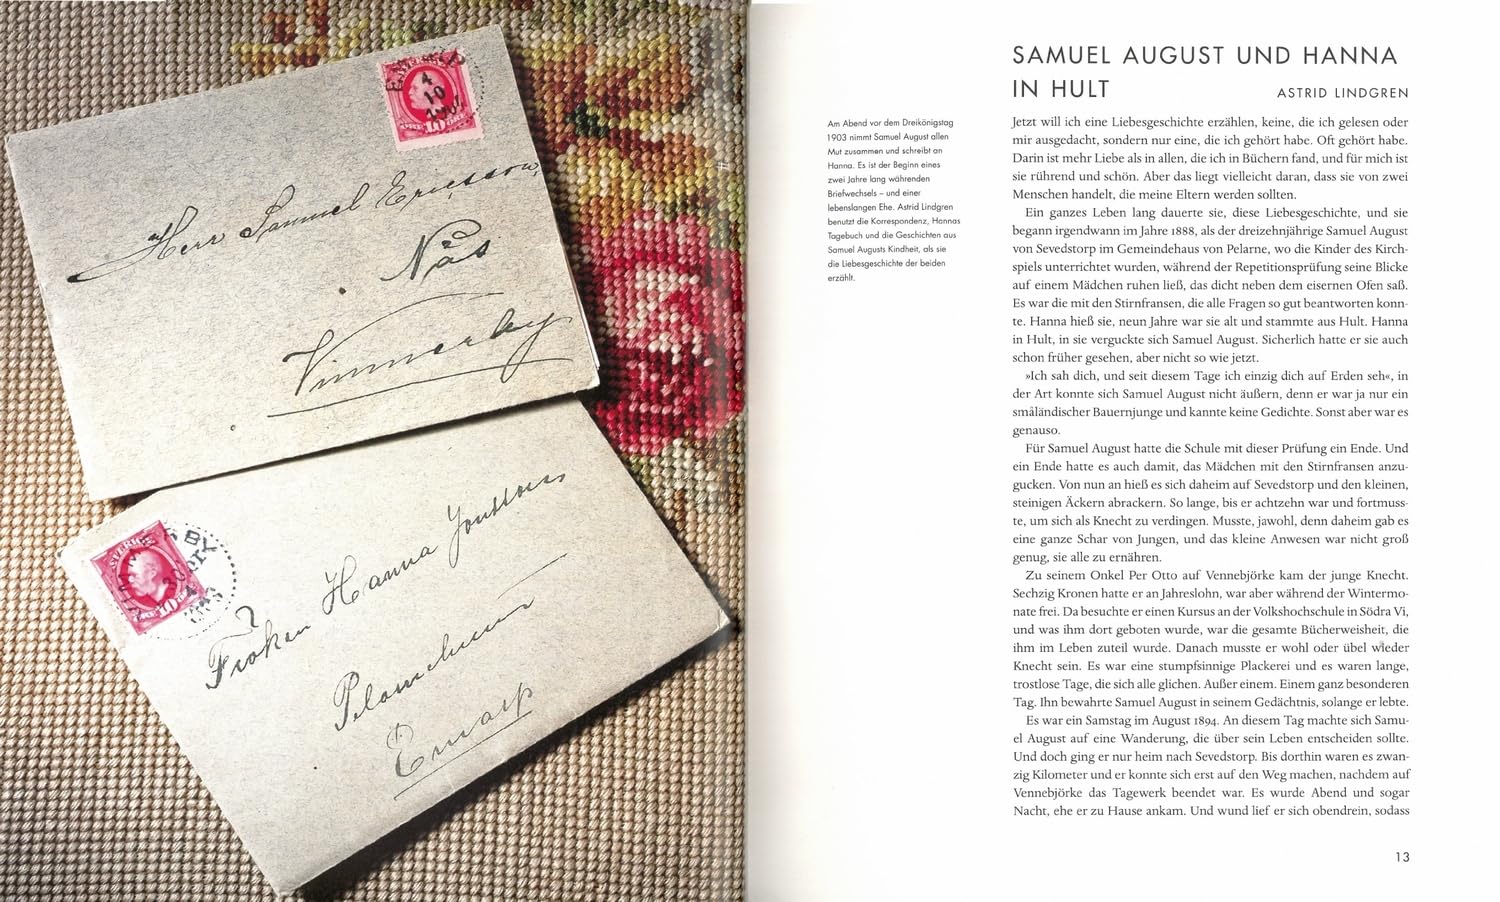 Herr Samuel Ericsson,
Näs
Vimmerby
SVERIGE
10
Fröken Hanna Jonsson,
Pelarnehult
SAMUEL AUGUST UND HANNA
IN HULT
ASTRID LINDGREN
Am Abend vor dem Dreikönigstag
1903 nimmt Samuel August allen
Mut zusammen und schreibt an
Hanna. Es ist der Beginn eines
zwei Jahre lang währenden
Briefwechsels – und einer
lebenslangen Ehe. Astrid Lindgren
benutzt die Korrespondenz, Hannas
Tagebuch und die Geschichten aus
Samuel Augusts Kindheit, als sie
die Liebesgeschichte der beiden
erzählt.
Jetzt will ich eine Liebesgeschichte erzählen, keine, die ich gelesen oder
mir ausgedacht, sondern nur eine, die ich gehört habe. Oft gehört habe.
Darin ist mehr Liebe als in allen, die ich in Büchern fand, und für mich ist
sie rührend und schön. Aber das liegt vielleicht daran, dass sie von zwei
Menschen handelt, die meine Eltern werden sollten.
Ein ganzes Leben lang dauerte sie, diese Liebesgeschichte, und sie
begann irgendwann im Jahre 1888, als der dreizehnjährige Samuel August
von Sevedstorp im Gemeindehaus von Pelarne, wo die Kinder des Kirch-
spiels unterrichtet wurden, während der Repetitionsprüfung seine Blicke
auf einem Mädchen ruhen ließ, das dicht neben dem eisernen Ofen saß.
Es war die mit den Stirnfransen, die alle Fragen so gut beantworten konn-
te. Hanna hieß sie, neun Jahre war sie alt und stammte aus Hult. Hanna
in Hult, in sie verguckte sich Samuel August. Sicherlich hatte er sie auch
schon früher gesehen, aber nicht so wie jetzt.
»Ich sah dich, und seit diesem Tage ich einzig dich auf Erden seh«, in
der Art konnte sich Samuel August nicht äußern, denn er war ja nur ein
småländischer Bauernjunge und kannte keine Gedichte. Sonst aber war es
genauso.
Für Samuel August hatte die Schule mit dieser Prüfung ein Ende. Und
ein Ende hatte es auch damit, das Mädchen mit den Stirnfransen anzu-
gucken. Von nun an hieß es sich daheim auf Sevedstorp und den kleinen,
steinigen Äckern abrackern. So lange, bis er achtzehn war und fortmuss-
te, um sich als Knecht zu verdingen. Musste, jawohl, denn daheim gab es
eine ganze Schar von Jungen, und das kleine Anwesen war nicht groß
genug, sie alle zu ernähren.
Zu seinem Onkel Per Otto auf Vennebjörke kam der junge Knecht.
Sechzig Kronen hatte er an Jahreslohn, war aber während der Wintermo-
nate frei. Da besuchte er einen Kursus an der Volkshochschule in Södra Vi,
und was ihm dort geboten wurde, war die gesamte Bücherweisheit, die
ihm im Leben zuteil wurde. Danach musste er wohl oder übel wieder
Knecht sein. Es war eine stumpfsinnige Plackerei und es waren lange,
trostlose Tage, die sich alle glichen. Außer einem. Einem ganz besonderen
Tag. Ihn bewahrte Samuel August in seinem Gedächtnis, solange er lebte.
Es war ein Samstag im August 1894. An diesem Tag machte sich Samu-
el August auf eine Wanderung, die über sein Leben entscheiden sollte.
Und doch ging er nur heim nach Sevedstorp. Bis dorthin waren es zwan-
zig Kilometer und er konnte sich erst auf den Weg machen, nachdem auf
Vennebjörke das Tagewerk beendet war. Es wurde Abend und sogar
Nacht, ehe er zu Hause ankam. Und wund lief er sich obendrein, sodass
13